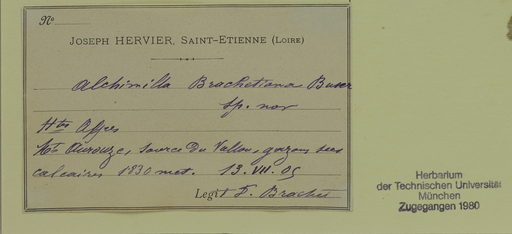 No
JOSEPH HERVIER, SAINT-ETIENNE (LOIRE)
Alchimilla Brachetiana Buser
sp. nov
Htes Alpes
Mt Aurouze, source du Vallon, gazons secs
calcaires 1830 met. 13.VII.05
Legit F. Brachet
Herbarium
der Technischen Universität
München
Zugegangen 1980